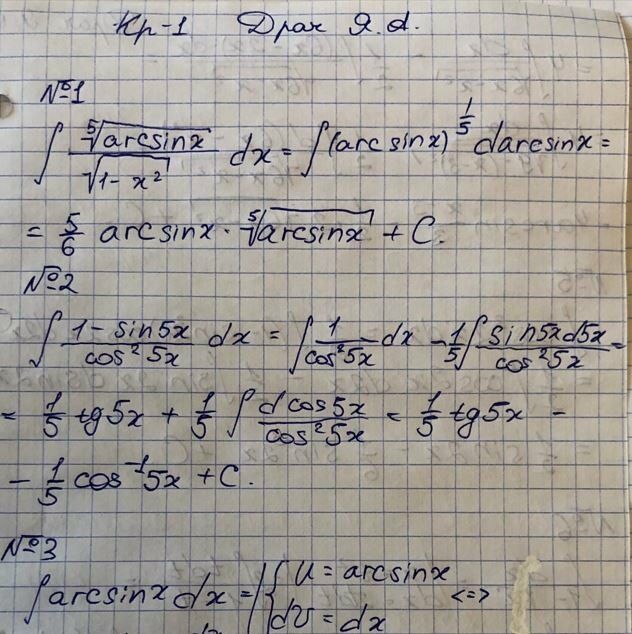 Кр-1 Драч Я.А.
№1
∫ ⁵√(arcsinx) / √(1-x²) dx = ∫(arcsinx)^(1/5) darcsinx =
= 5/6 arcsinx · ⁵√(arcsinx) + C.
№2
∫ (1-sin5x)/(cos²5x) dx = ∫ 1/(cos²5x) dx - 1/5 ∫ (sin5xd5x)/(cos²5x) =
= 1/5 tg5x + 1/5 ∫ (dcos5x)/(cos²5x) = 1/5 tg5x -
- 1/5 cos⁻¹5x + C.
№3
∫ arcsinx dx = |{ U = arcsinx <=>
dV = dx